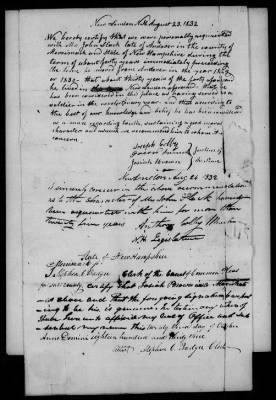 New London N.H. August 23. 1832
We hereby certify that we were personally acquainted
with Mr. John Slack late of Andover in the county of
Merrimack and State of New Hampshire during the
term of about forty years immediately preceeding
the time he moved from Andover in the year
or 1832. that about thirty years of the forty aforesaid
he lived in that he
has been considered in this place as having been a
soldier in the revolutionary war and that according to
the best of our knowledge and belief he has sustained
as a man regarding truth, sustaining a good moral
character and which we accordingly recommend him to whom it
concern.
Joseph Colby
Justices of
Josiah Brown the Peace
New London Aug 25 1832
I sincerely concur in the above recommendation
as to the character of Mr John Slack having
been acquainted with him for more than
twenty five years
Anthony Colby Member
N.H. Legislature
State of New Hampshire
Merrimack ss
I Stephen C. Badger Clerk of the Court of Common Pleas
for said county, certify that Josiah Brown is a
as above and that the foregoing signature purport-
ing to be his is genuine. In testimony whereof
I have hereunto affixed my seal of Office and sub-
scribed my name this day of
Anno Domini eighteen hundred and thirty
Attest Stephen C. Badger Clerk